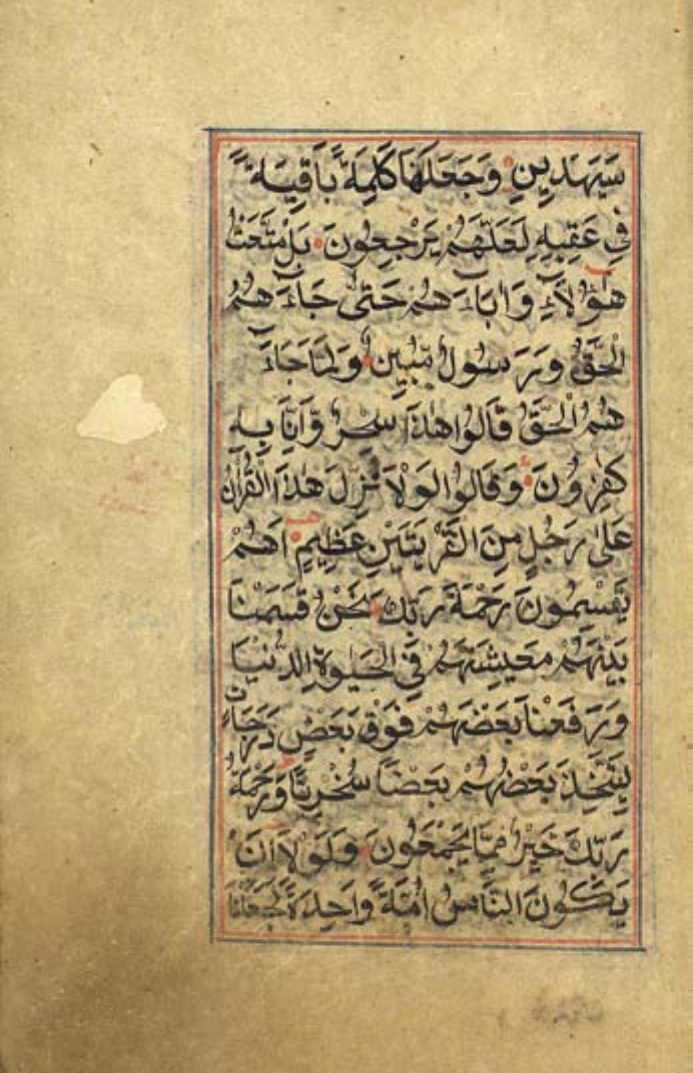 سَيَهْدِينِ وَجَعَلَهَا كَلِمَةً بَاقِيَةً
فِي عَقِبِهِ لَعَلَّهُمْ يَرْجِعُونَ بَلْ مَتَّعْتُ
هٰؤُلَاءِ وَاٰبَاءَهُمْ حَتّٰى جَاءَهُمُ
الْحَقُّ وَرَسُولٌ مُّبِينٌ وَلَمَّا جَاءَ
هُمُ الْحَقُّ قَالُوا هٰذَا سِحْرٌ وَّاِنَّا بِهٖ
كٰفِرُونَ وَقَالُوا لَوْلَا نُزِّلَ هٰذَا الْقُرْاٰنُ
عَلٰى رَجُلٍ مِنَ الْقَرْيَتَيْنِ عَظِيمٍ اَهُمْ
يَقْسِمُونَ رَحْمَةَ رَبِّكَ نَحْنُ قَسَمْنَا
بَيْنَهُمْ مَعِيشَتَهُمْ فِي الْحَيٰوةِ الدُّنْيَا
وَرَفَعْنَا بَعْضَهُمْ فَوْقَ بَعْضٍ دَرَجَاتٍ
لِيَتَّخِذَ بَعْضُهُمْ بَعْضًا سُخْرِيًّا وَرَحْمَةُ
رَبِّكَ خَيْرٌ مِمَّا يَجْمَعُونَ وَلَوْلَا اَنْ
يَكُونَ النَّاسُ اُمَّةً وَاحِدَةً لَجَعَلْنَا